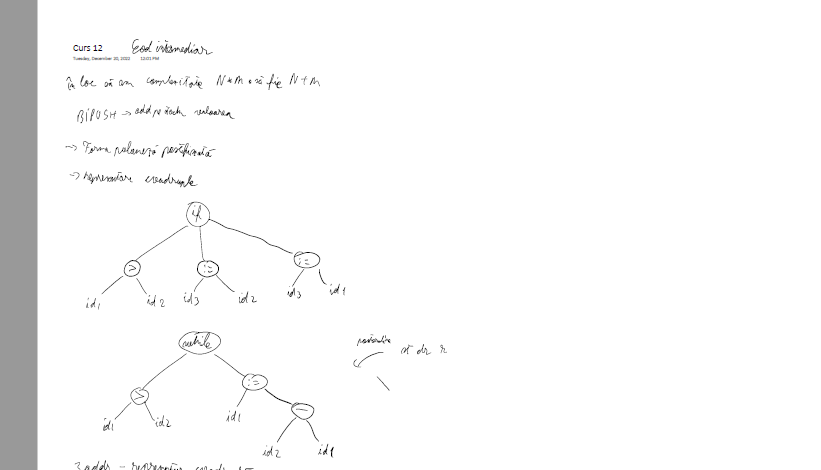 Curs 12 Cod intermediar
Tuesday, December 20, 2022 12:01 PM
în loc să am complexitate N * M să fie N + M
BIPUSH → add pe stack valoarea
→ Forma poloneză postfixată
→ reprezentare cvadruple
if
> := :=
id1 id2 id3 id2 id3 id1
while
postordine st dr r
> :=
id1 id2 id1 -
id2 id1
3 addr -